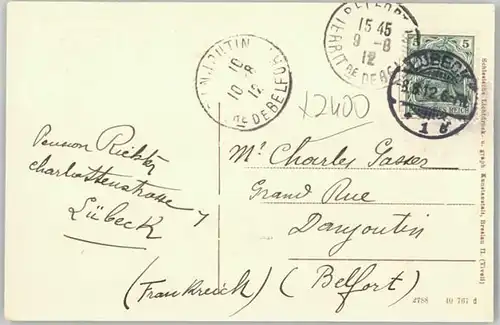 BELFORT
15 45
9-8
12
TERRIT RE DE BELFORT
DANJOUTIN
10
10-8
12
RE DE BELFORT
5 5
LÜBECK
1 g
x2400
Pension Richter
Charlottenstrasse 7
Lübeck
Mr Charles Gasser
Grand Rue
Danjoutin
(Belfort)
(Frankreich)
Schlesische Lichtdruck- u. graph. Kunstanstalt, Breslau II. (Tivoli)
2788 10 761 d